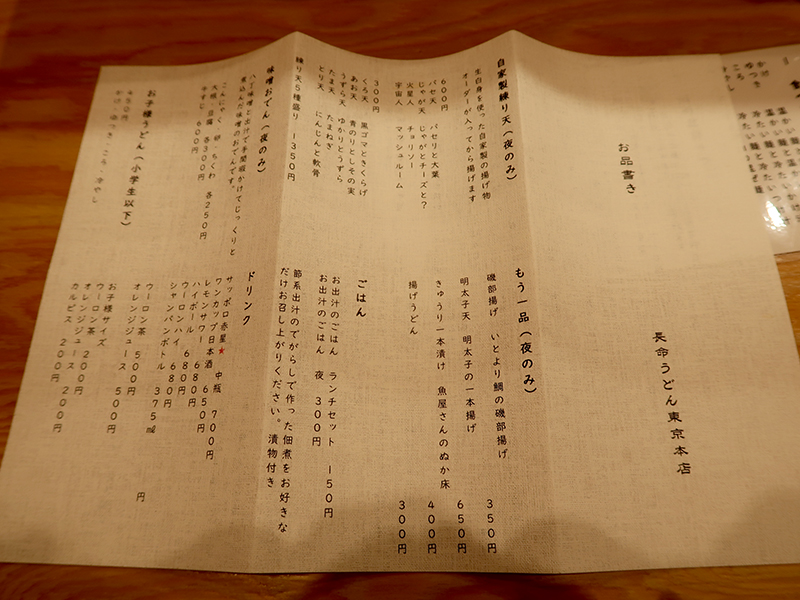 お品書き
長命うどん東京本店
自家製練り天(夜のみ)
生白身を使った自家製の揚げ物
オーダーが入ってから揚げます
600円
パセ天 パセリと大葉
じゃが天 じゃがとチーズと?
火星人 チョリソー
宇宙人 マッシュルーム
300円
くろ天 黒ゴマときくらげ
あお天 青のりとしその実
うずら天 ゆかりとうずら
たま天 たまねぎ
とり天 にんじんと軟骨
練り天5種盛り 1350円
もう一品(夜のみ)
磯部揚げ いとより鯛の磯部揚げ 350円
明太子天 明太子の一本揚げ 650円
きゅうり一本漬け 魚屋さんのぬか床 400円
揚げうどん 300円
ごはん
お出汁のごはん ランチセット 150円
お出汁のごはん 夜 300円
節系出汁のでがらしで作った佃煮をお好きな
だけお召し上がりください。漬物付き
味噌おでん(夜のみ)
八丁味噌と出汁で手間暇かけてじっくりと
煮込んだ味噌のおでんです。
こんにゃく 卵 ちくわ 各250円
大根 豆腐 各300円
牛すじ 600円
お子様うどん(小学生以下)
450円
かけ・ゆつき・ころ・冷やし
ドリンク
サッポロ赤星★ 中瓶 700円
ワンカップ日本酒 650円
レモンサワー 680円
ハイボール 680円
ウーロンハイ 680円
シャンパンボトル 375ml 円
ウーロン茶 500円
オレンジジュース 500円
お子様サイズ
ウーロン茶 200円
オレンジジュース 200円
カルピス 200円